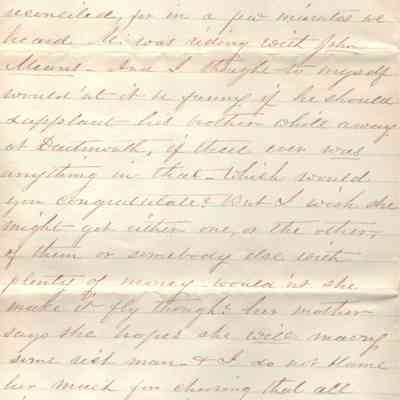 reconciled, for in a few minutes we
heard M. was riding with John
Means - And I thought to myself
would'nt it be funny if he should
supplant his brother while away
at Dartmouth, if there ever was
anything in that - Which would
you congratulate? But I wish she
might get either one, or the other,
of them or somebody else with
plenty of money - would'nt she
make it fly though? her mother
says she hopes she will marry
some rich man - & I do not blame
her much for chasing that all